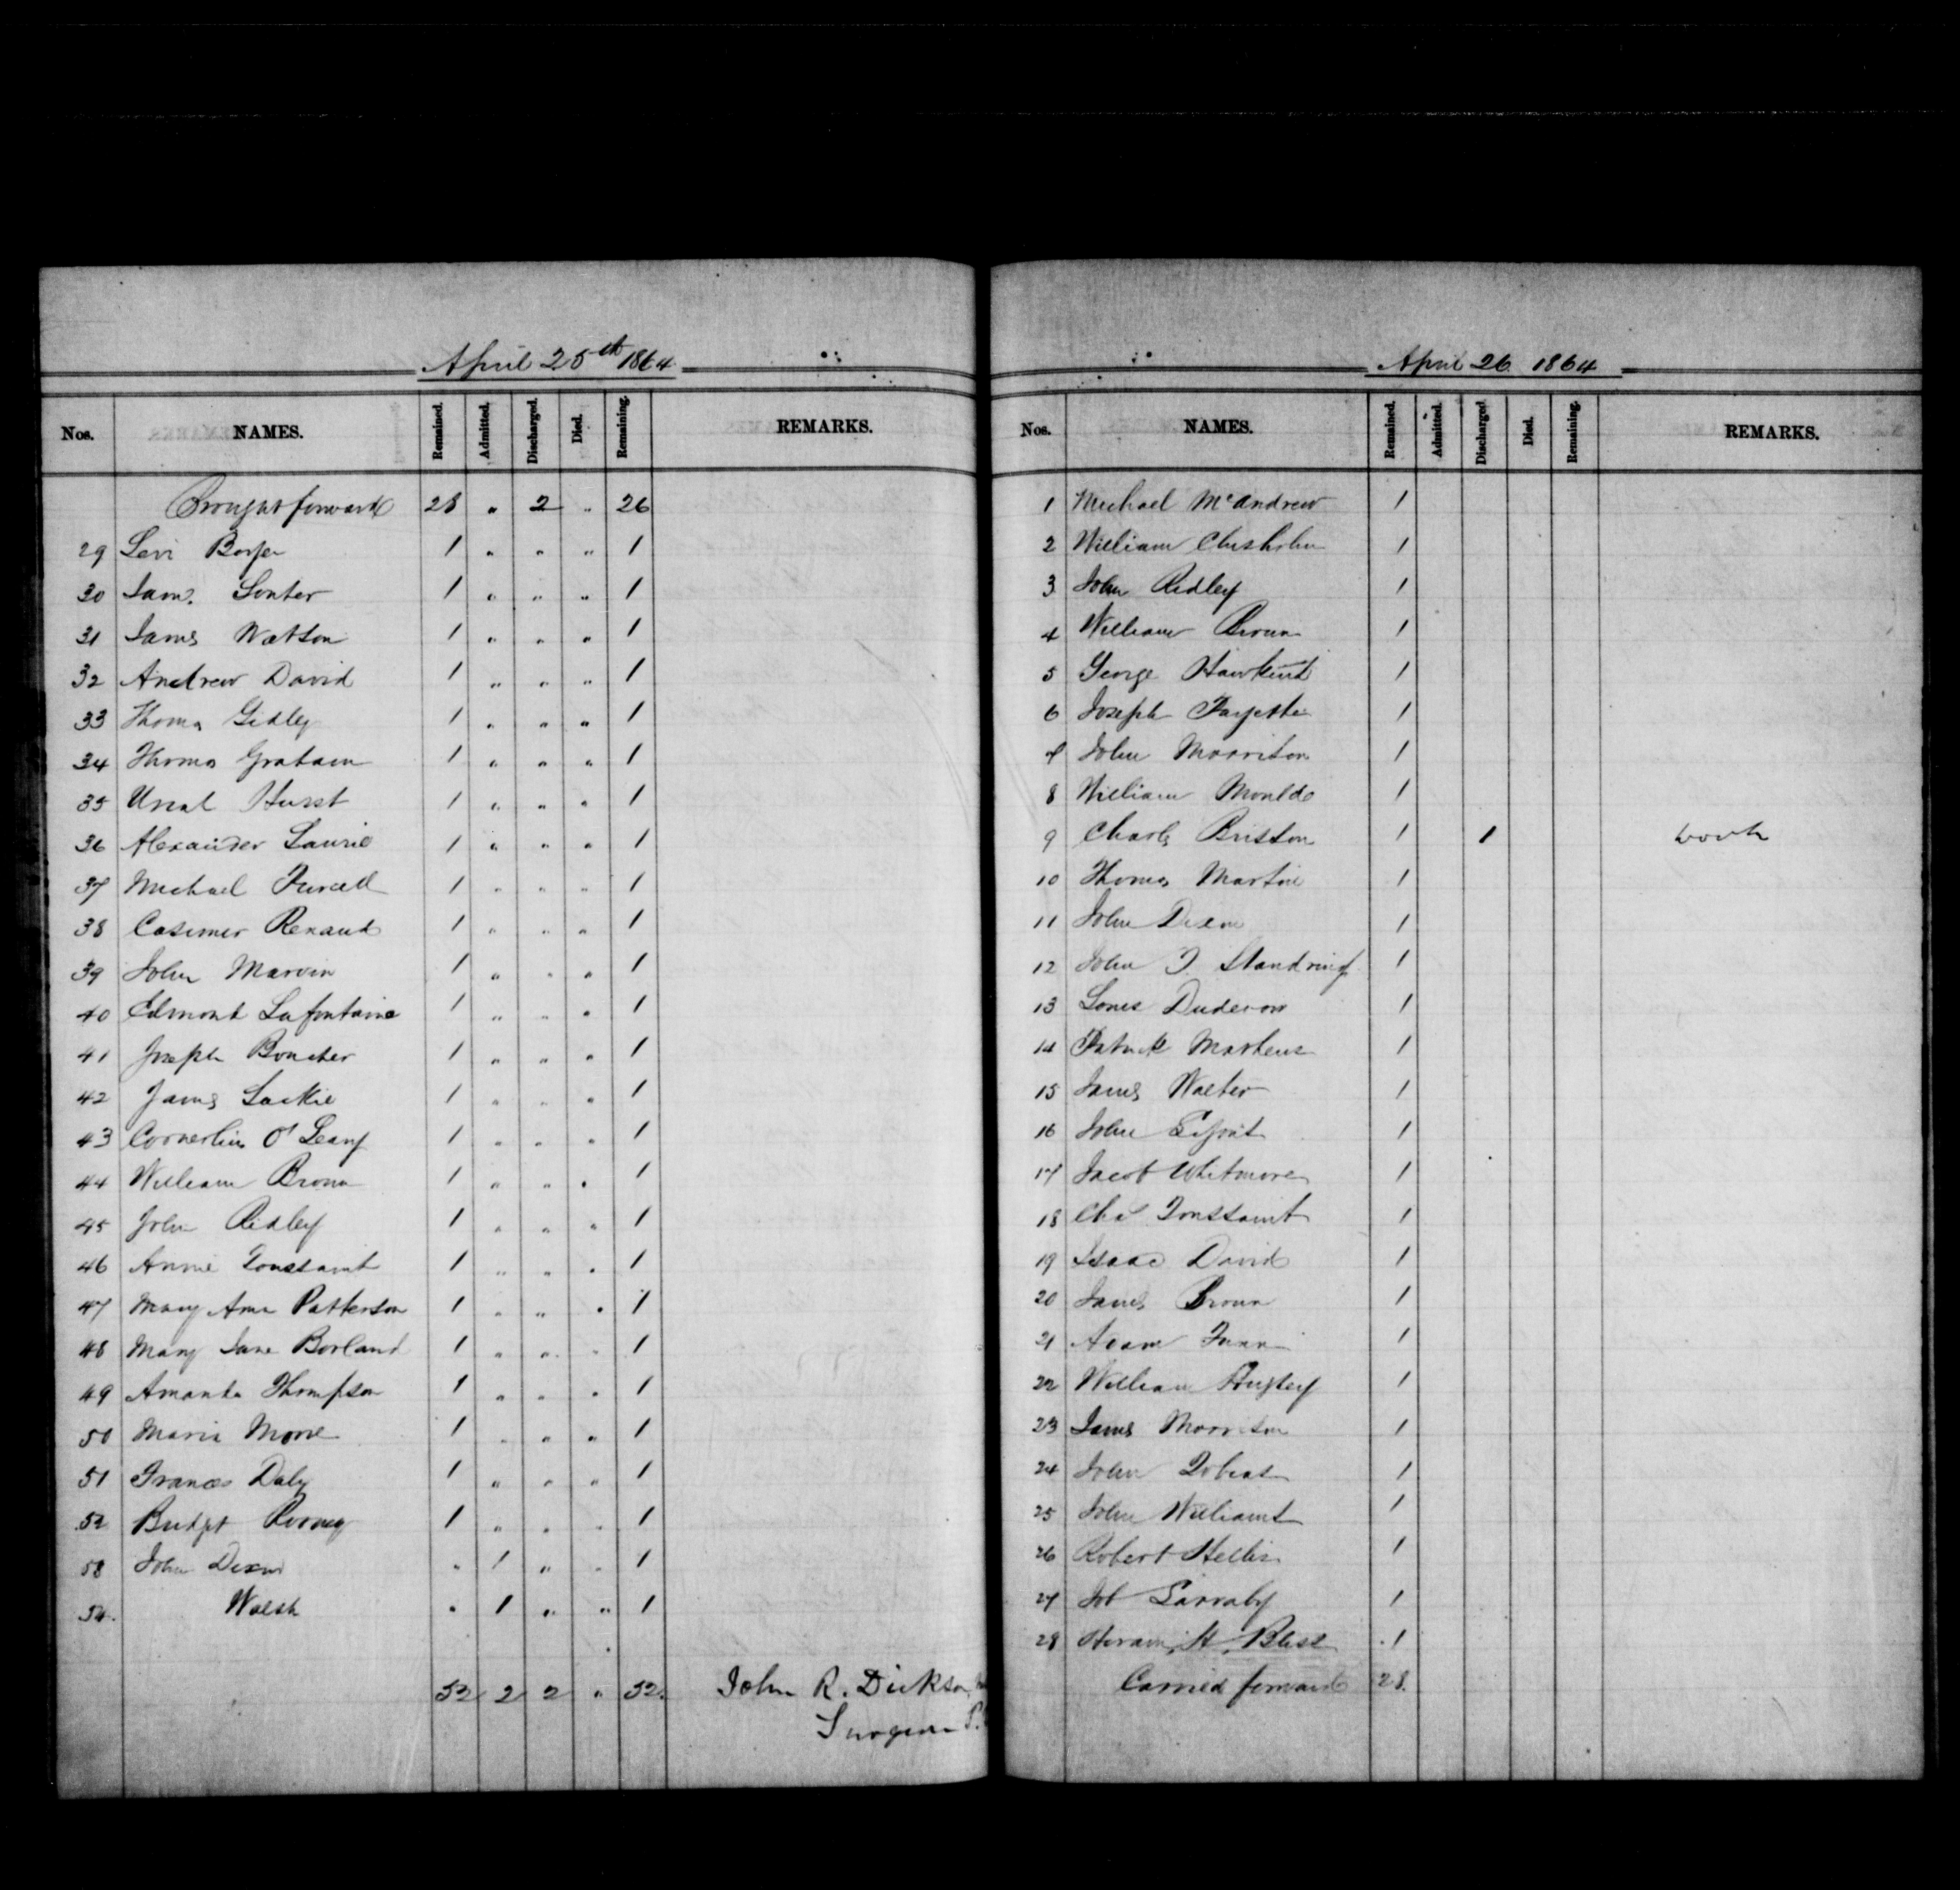 April 25th 1864
Nos. NAMES. Remained. Admitted. Discharged. Died. Remaining. REMARKS.
Brought forward 28 " 2 " 26
29 Levi 1 " " " 1
30 Jam. Souter 1 " " " 1
31 James Watson 1 " " " 1
32 Andrew David 1 " " " 1
33 Thomas Gidley 1 " " " 1
34 Thomas Graham 1 " " " 1
35 Hurst 1 " " " 1
36 Alexander Laurie 1 " " " 1
37 Michael Purcell 1 " " " 1
38 Casimer Renaud 1 " " " 1
39 John Marvin 1 " " " 1
40 Edmond Lafontaine 1 " " " 1
41 Joseph Boucher 1 " " " 1
42 James Lackie 1 " " " 1
43 Cornerlius O'Leary 1 " " " 1
44 William Brown 1 " " " 1
45 John Ridley 1 " " " 1
46 Annie Toussaint 1 " " " 1
47 Mary Ann Patterson 1 " " " 1
48 Mary Jane Borland 1 " " " 1
49 Amanda Thompson 1 " " " 1
50 Maria Moore 1 " " " 1
51 Frances Daly 1 " " " 1
52 Bridget Rooney 1 " " " 1
53 John Dixon " 1 " " 1
54. Walsh " 1 " " 1
52 2 2 " 52. John R. Dickson
Surgeon P.
April 26 1864
Nos. NAMES. Remained. Admitted. Discharged Died. Remaining. REMARKS.
1 Michael McAndrew 1
2 William Chisholm 1
3 John Ridley 1
4 William Brown 1
5 George Hawkins 1
6 Joseph Payette 1
7 John Morrison 1
8 William Moulds 1
9 Charles Briston 1 1 work
10 Thomas Martin 1
11 John Dixon 1
12 John T. Standring 1
13 Louis Duderow 1
14 Patrick 1
15 James Walter 1
16 John 1
17 Jacob Whitmore 1
18 Chas Toussaint 1
19 Isaac David 1
20 James Brown 1
21 Adam 1
22 William 1
23 James Morrison 1
24 John 1
25 John Williams 1
26 Robert Hellis 1
27 Job Larraby 1
28 Hiram H. Bliss 1
Carried forward 28.